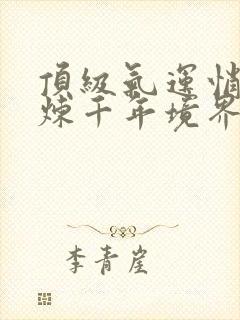 頂級氣運悄
煉千年境界
李青崖